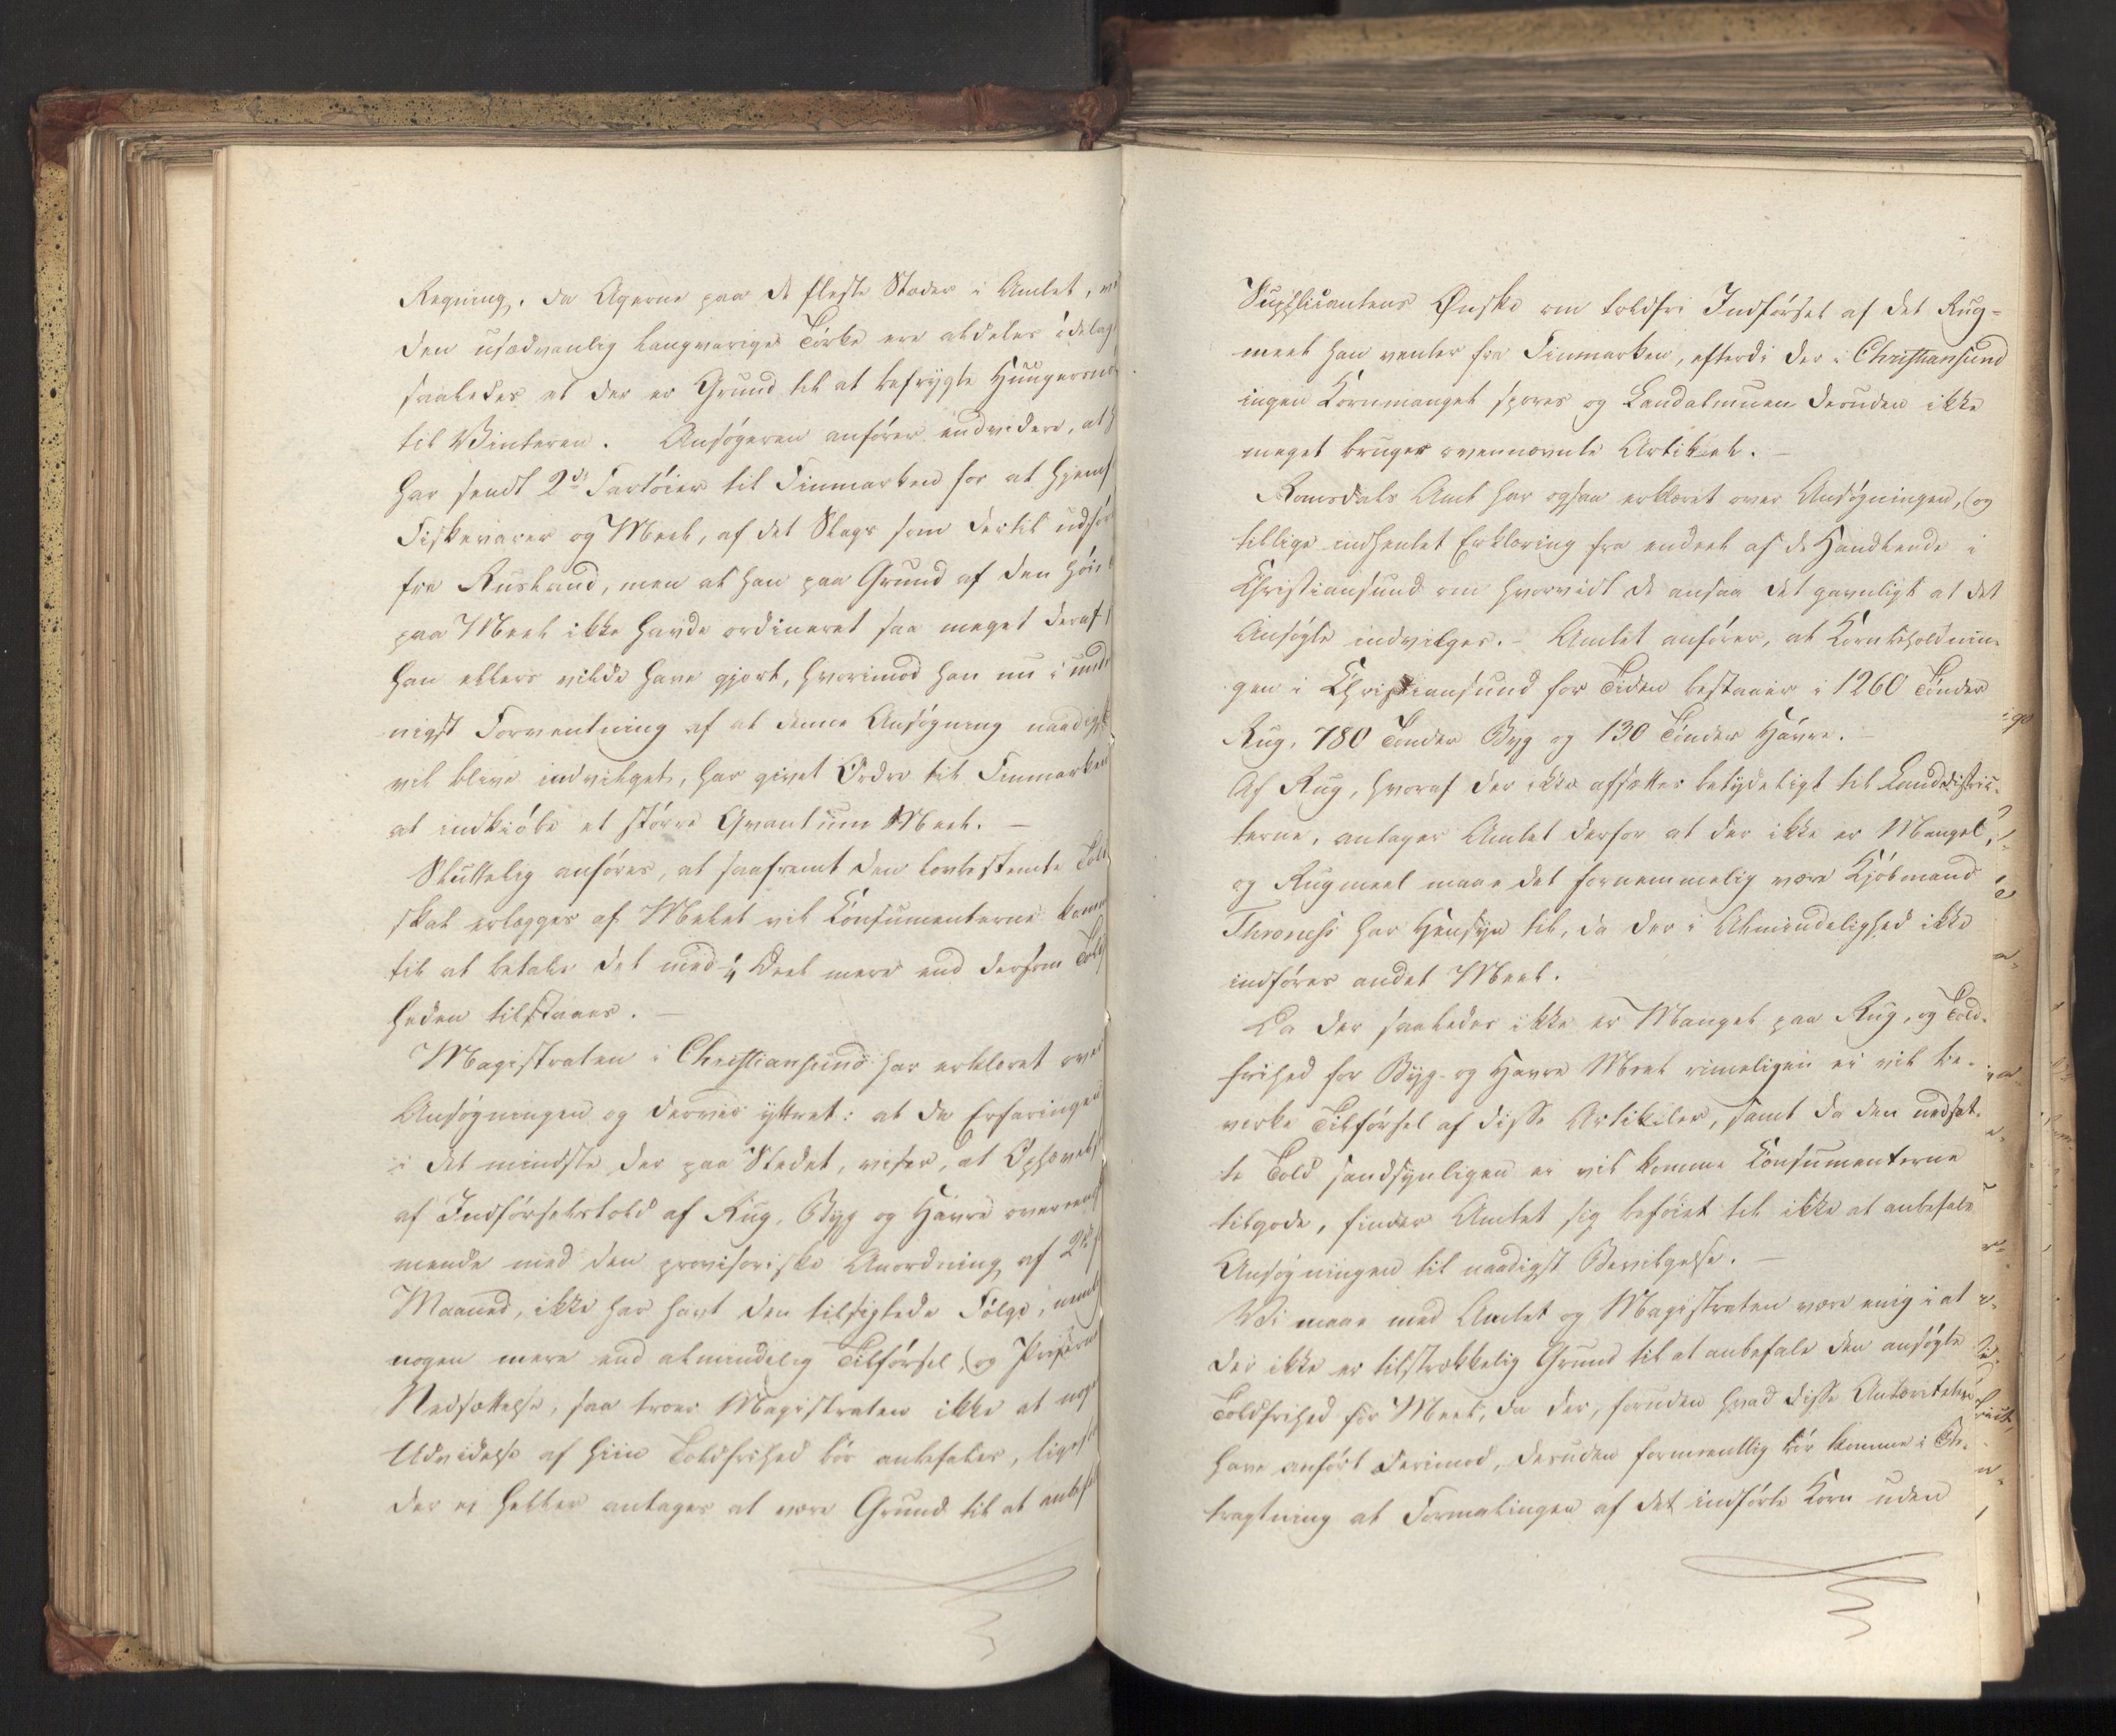 Regning, da Agerne paa de fleste Stæder i Amtet, ved
den usædvanlig langvarige Tørke ere aldeles ødelag
saaledes at der er Grund til at befrygte Hungersnø
til Vinteren. Ansøgeren anfører endvidere, at h
har sendt 2de Fartøier til Finmarken for at hjem
Fiskevarer og Meel, af det Slags som dertil udfør
fra Rusland, men at han paa Grund af den høie
paa Meel ikke havde ordineret saa meget deraf
han ellers vilde have gjort, hvorimod han nu i und
nigst Forventning af at denne Ansøgning naadigst
vil blive indvilget, har givet Ordre til Finmarken
at indkiøbe et større Qvantum Meel. —
Sluttelig anføres, at saafremt den lovbestemte Told
skal erlægges af Melet vil Consumenterne komme
til at betale det med ¼ Deel mere end dersom Told
heden tilstaaes. —
Magistraten i Christiansund har erklæret over
Ansøgningen og derved yttret: at da Erfaringen
i det mindste der paa Stedet, viser, at Ophævels
af Indførselstold af Rug, Byg og Havre overeens
mende med den provisoriske Anordning af 2de
Maaned, ikke har havt den tilsigtede Følge, neml
nogen mere end almindelig Tilførsel, og Prisernes
Nedsættelse, saa troer Magistraten ikke at noge
Udvidelse af hiin Toldfrihed bør anbefales, ligesaa
der ei heller antages at være Grund til at anbefa
Supplicantens Ønske om toldfri Indførsel af det Rug-
meel han venter fra Finmarken, efterdi der i Christiansund
ingen Kornmangel spores og Landalmuen desuden ikke
meget bruger ovennævnte Artikel. —
Romsdals Amt har ogsaa erklæret over Ansøgningen, og
tillige indhentet Erklæring fra endeel af de Handlende i
Christiansund om hvorvidt de ansaa det gavnligt at det
Ansøgte indvilges. - Amtet anfører, at Kornbeholdnin-
gen i Christiansund for Tiden bestaaer i 1260 Tønder
Rug, 780 Tønder Byg og 130 Tønder Havre. —
Af Rug, hvoraf der ikke afsættes betydeligt til Landdistric-
terne, antager Amtet derfor at der ikke er Mangel,
og Rugmeel maae det fornemmelig være Kjøbmand
Throness har Hensyn til, da der i Almindelighed ikke
indføres andet Meel.
Da der saaledes ikke er Mangel paa Rug, og Told-
frihed for Byg- og Havre Meel rimeligen ei vil be-
virke Tilførsel af disse Artikeler, samt da den nedsat-
te Told sandsynligen ei vil komme Consumenterne
tilgode, finder Amtet sig beføiet til ikke at anbefale
Ansøgningen til naadigst Bevilgelse. —
Vi maae med Amtet og Magistraten være enig i at
der ikke er tilstrækkelig Grund til at anbefale den ansøgte
Toldfrihed for Meel, da der, foruden hvad disse Autoriteter
have anført derimod, desuden formeentlig bør komme i Be-
tragtning at Formalingen af det indførte Korn uden